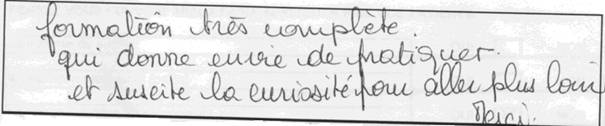 formation très complète.
qui donne envie de pratiquer.
et suscite la curiosité pour aller plus loin
Merci.